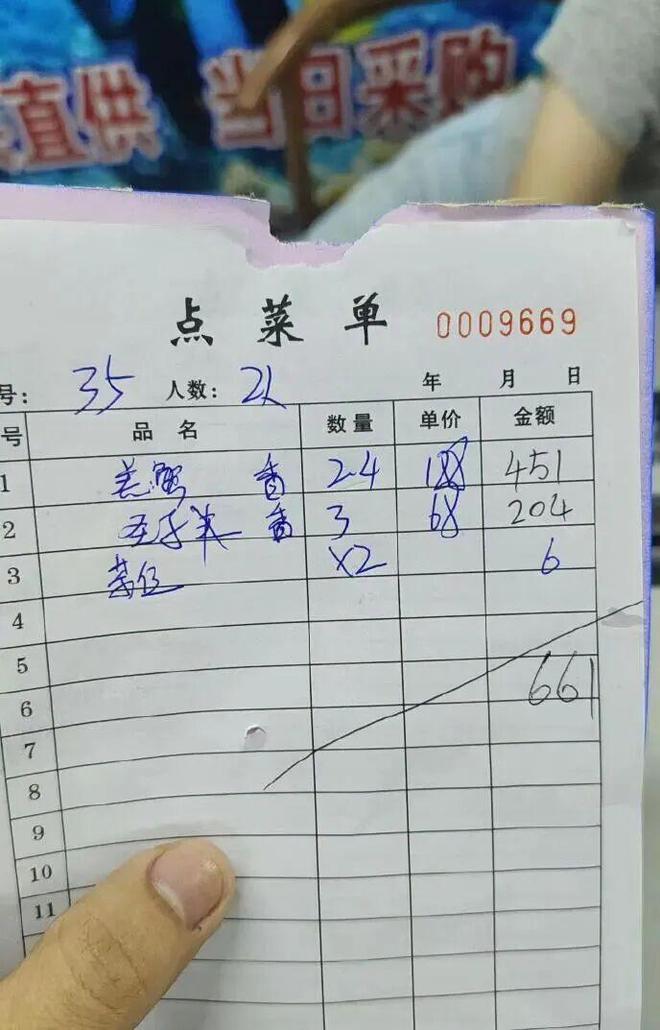 直供 当日采购
点菜单 0009669
号: 35 人数: 2人 年 月 日
号 品名 数量 单价 金额
1 羔蟹 香 2.4 188 451
2 圣子王 香 3 68 204
3 茶位 x2 6
4
5
6 661
7
8
9
10
11